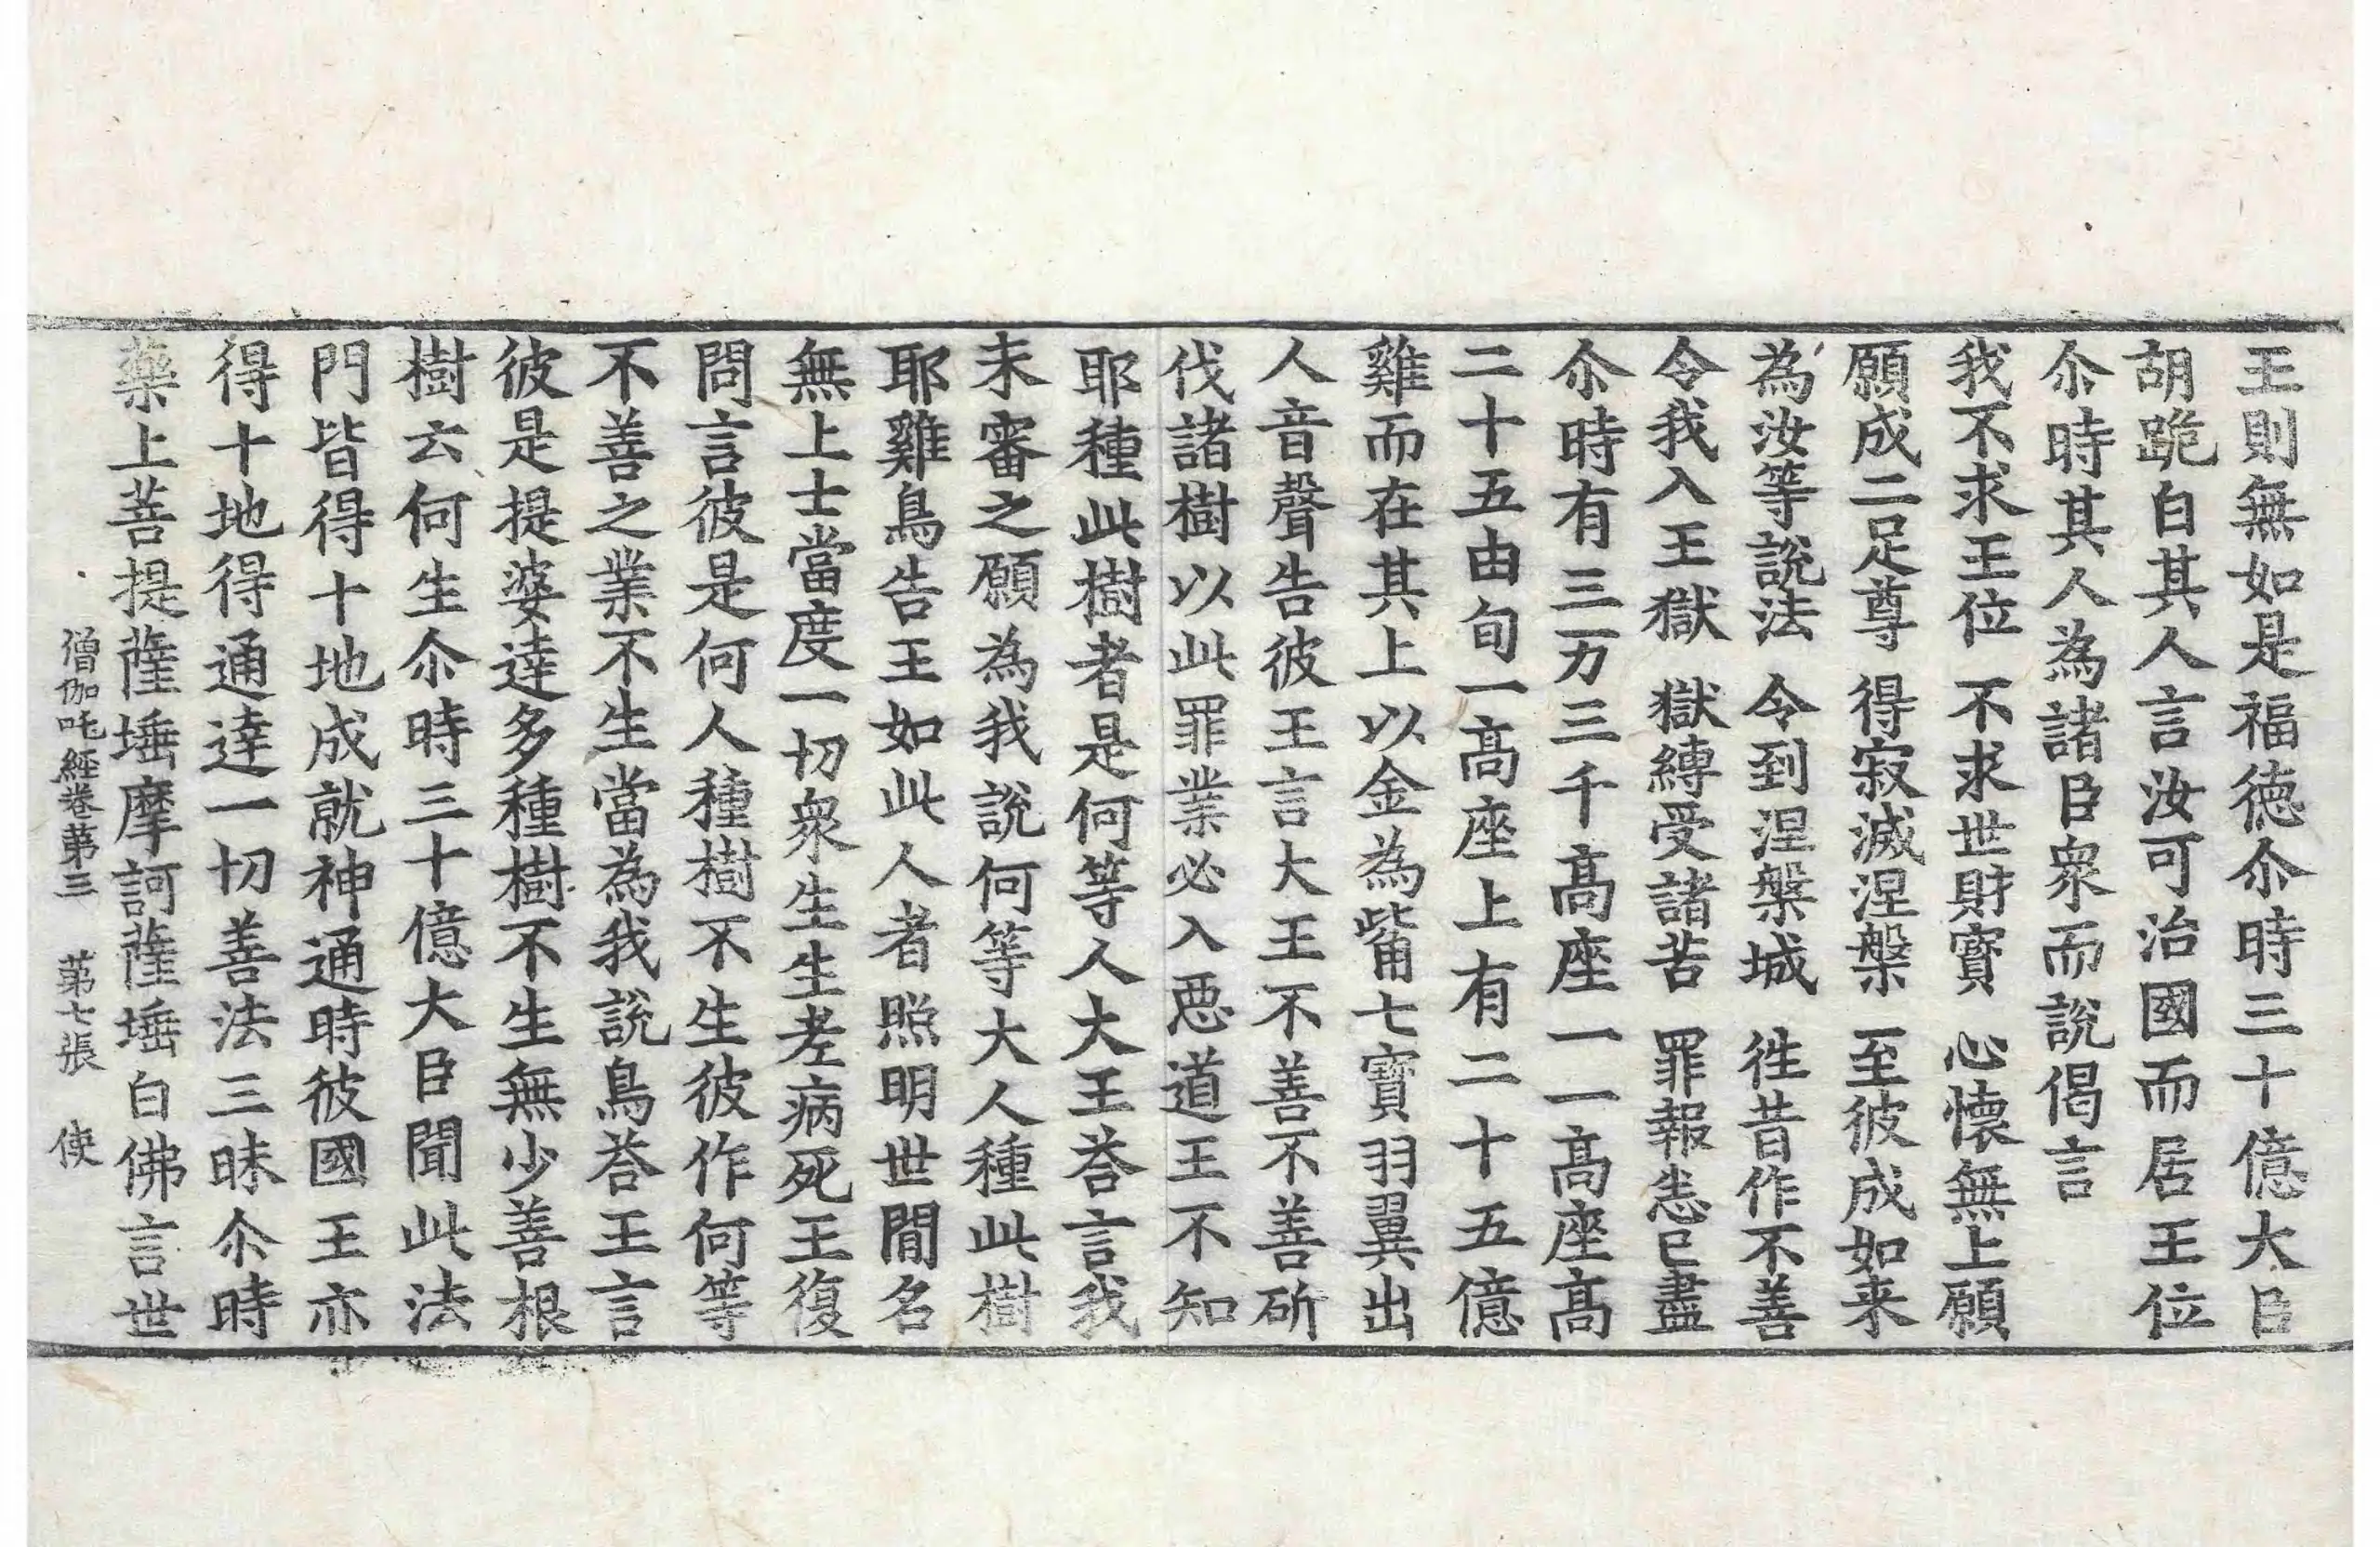 王則無如是福德尒時三十億大臣
胡跪白其人言汝可治國而居王位
尒時其人為諸臣衆而說偈言
我不求王位　不求世財寳　心懷無上願
願成二足尊　得寂滅涅槃　至彼成如来
為汝等說法　令到涅槃城　徃昔作不善
令我入王獄　獄縛受諸苦　罪報悉已盡
尒時有三万三千髙座一一髙座髙
二十五由旬一髙座上有二十五億
雞而在其上以金為觜七寳羽翼出
人音聲告彼王言大王不善不善斫
伐諸樹以此罪業必入惡道王不知
耶種此樹者是何等人大王荅言我
未審之願為我說何等大人種此樹
耶雞鳥告王如此人者照明世間名
無上士當度一切衆生生老病死王復
問言彼是何人種樹不生彼作何等
不善之業不生當為我說鳥荅王言
彼是提婆達多種樹不生無少善根
樹云何生尒時三十億大臣聞此法
門皆得十地成就神通時彼國王亦
得十地得通達一切善法三昧尒時
藥上菩提薩埵摩訶薩埵白佛言世
僧伽吒經卷第三　第七張　使